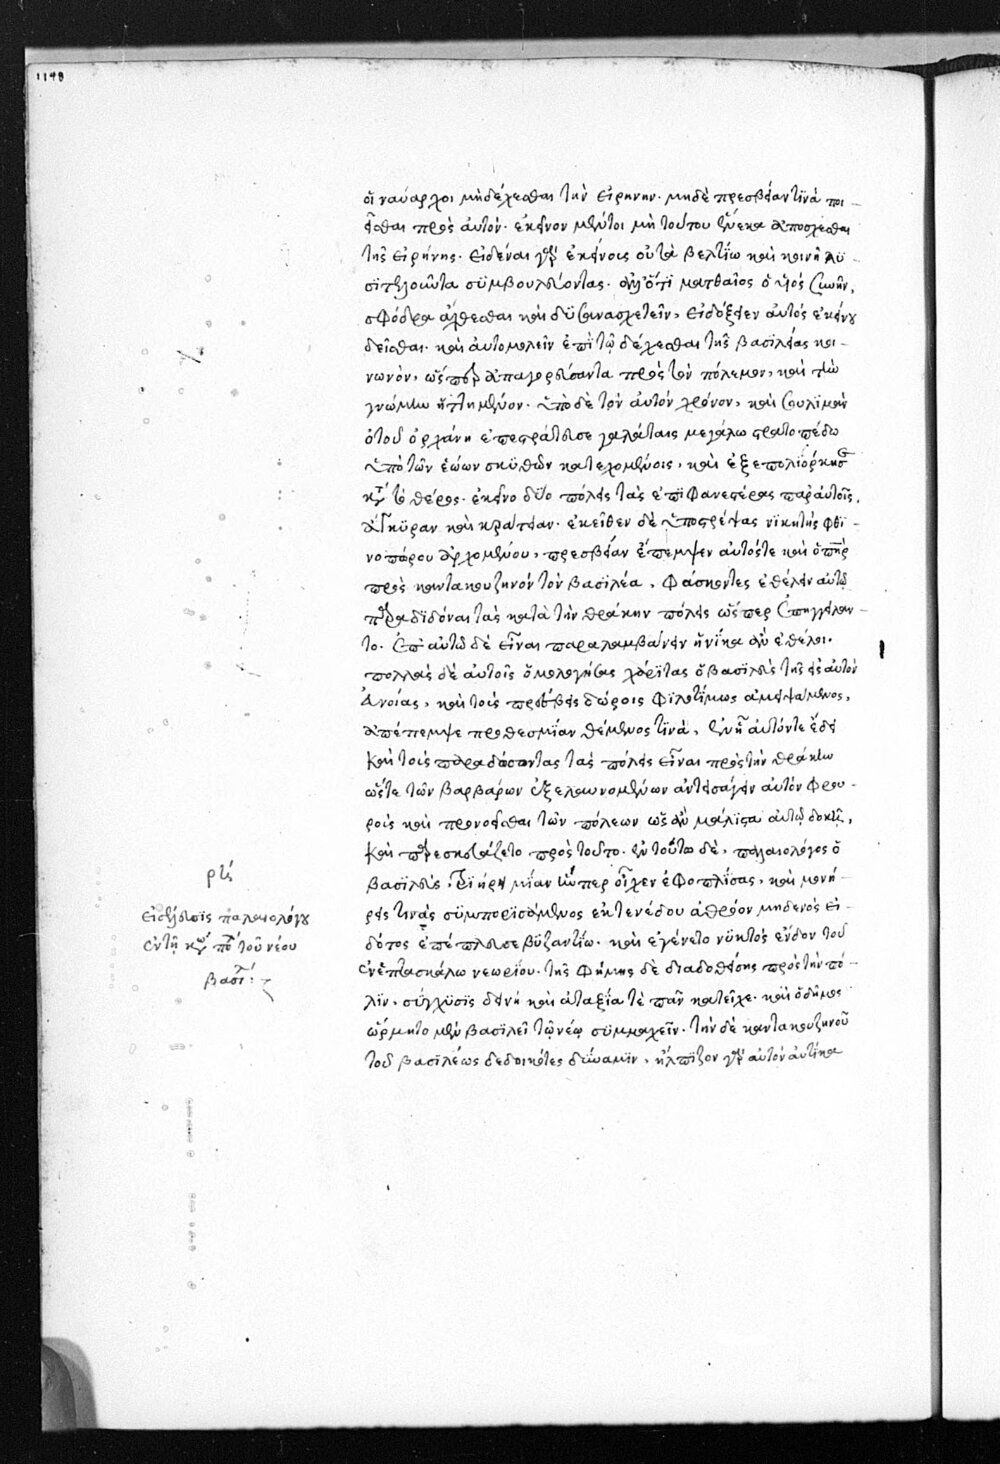 1148
οἱ ναύαρχοι μὴ δέχεσθαι τὴν εἰρήνην. μηδὲ πρεσβείαν τινὰ ποι-
εῖσθαι πρὸς αὐτόν. ἐκεῖνον μέντοι μὴ τούτου ἕνεκα ἀποσχέσθαι
τῆς εἰρήνης. εἰδέναι γὰρ ἐκείνοις οὐ τὰ βελτίω καὶ κοινῇ λυ-
σιτελοῦντα συμβουλεύοντας. ἀλλ' ὅτι ματθαῖος ὁ υἱός
σφόδρα ἄχθεσθαι καὶ δυσανασχετεῖν, εἰ δόξειεν αὐτὸς ἐκείνου
δεῖσθαι. καὶ αὐτομολεῖν ἐπὶ τῷ δέχεσθαι τῆς βασιλείας κοι-
νωνὸν, ὥσπερ ἀπαγορεύσαντα πρὸς τὸν πόλεμον, καὶ τὴν
γνώμην ἡττημένον. ὑπὸ δὲ τὸν αὐτὸν χρόνον, καὶ σουλιμὰν
ὁ τοῦ ὀρχάνη ἐπεστράτευσε γαλάταις μεγάλῳ στρατοπέδῳ
ὑπὸ τῶν ἑῴων σκυθῶν κατεχομένοις, καὶ ἐξεπολιόρκησε
κατὰ τὸ θέρος ἐκεῖνο δύο πόλεις τὰς ἐπιφανεστέρας παρ' αὐτοῖς,
ἄγκυραν καὶ κράτειαν. ἐκεῖθεν δὲ ὑποστρέψας νικητὴς φθι-
νοπώρου ἀρχομένου, πρεσβείαν ἔπεμψεν αὐτός τε καὶ ὁ πατὴρ
πρὸς καντακουζηνὸν τὸν βασιλέα, φάσκοντες ἐθέλειν αὐτῷ
παραδιδόναι τὰς κατὰ τὴν θράκην πόλεις ὥσπερ ἐπηγγείλαν-
το. ἐπ' αὐτῷ δὲ εἶναι παραλαμβάνειν ἡνίκα ἂν ἐθέλοι.
πολλὰς δὲ αὐτοῖς ὁμολογήσας χάριτας ὁ βασιλεὺς τῆς εἰς αὐτὸν
εὐνοίας, καὶ τοὺς πρέσβεις δώροις φιλοτίμως ἀμειψάμενος,
ἀπέπεμψε προθεσμίαν θέμενός τινα, ἐν ᾗ αὐτόν τε ἔδει
καὶ τοὺς παραδώσοντας τὰς πόλεις εἶναι πρὸς τὴν θράκην
ὥστε τῶν βαρβάρων ἐξελαυνομένων ἀντεισάγειν αὐτὸν φρου-
ροὺς καὶ προνοεῖσθαι τῶν πόλεων ὡς ἂν μάλιστα αὐτῷ δοκῇ,
καὶ παρεσκευάζετο πρὸς τοῦτο. ἐν τούτῳ δὲ, παλαιολόγος ὁ
βασιλεὺς, τριήρη μίαν ἥνπερ εἶχεν ἐφοπλίσας, καὶ μονή-
ρεις τινὰς συμπορισάμενος ἐκ τενέδου ἀθρόον μηδενὸς εἰ-
δότος ἐπέπλευσε βυζαντίῳ. καὶ ἐγένετο νυκτὸς ἔνδον τοῦ
ἐν ἑπτασκάλῳ νεωρίου. τῆς φήμης δὲ διαδοθείσης πρὸς τὴν πό-
λιν, σύγχυσις δεινὴ καὶ ἀταξία τὸ πᾶν κατεῖχε. καὶ ὁ δῆμος
ὥρμητο μὲν βασιλεῖ τῷ νέῳ συμμαχεῖν. τὴν δὲ καντακουζηνοῦ
τοῦ βασιλέως δεδοικότες δύναμιν, ἤλπιζον γὰρ αὐτὸν αὐτίκα
εἰσέλευσις παλαιολόγου
ἐν τῇ κων πο τοῦ νέου
βασι: